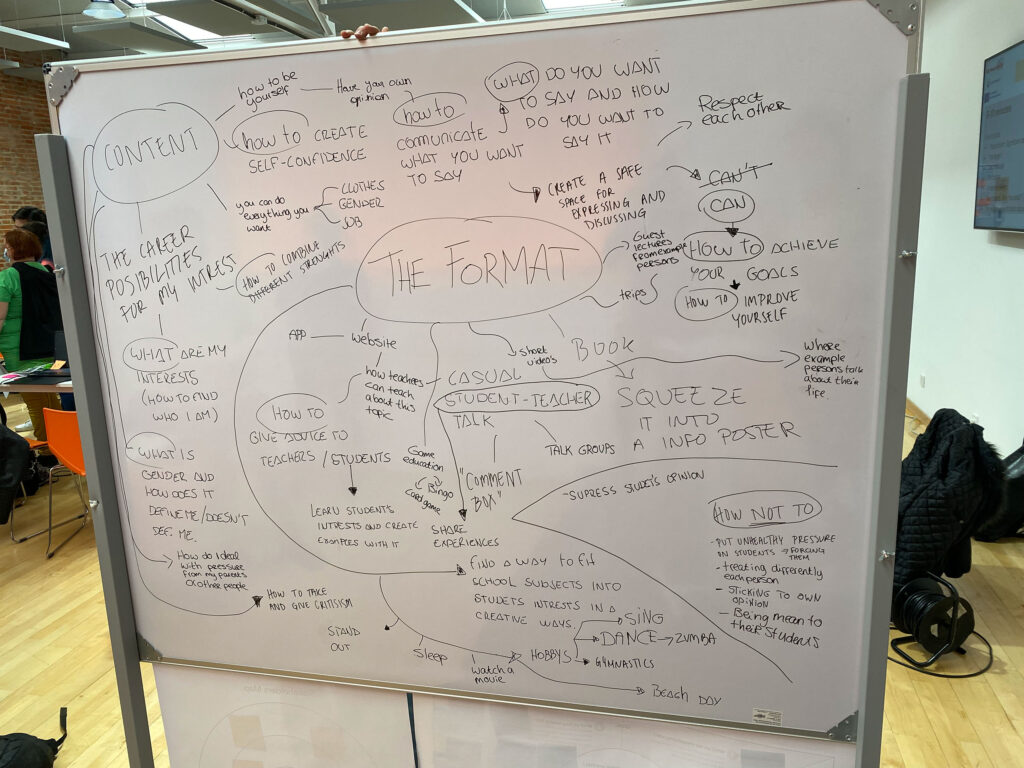 CONTENT
how to be
yourself
Have your own
opinion
how to CREATE
SELF-CONFIDENCE
how to
COMUNICATE
WHAT YOU WANT
TO SAY
WHAT DO YOU WANT
TO SAY AND HOW
DO YOU WANT TO
SAY IT
Respect
each other
you can do
everything you
want
CLOTHES
GENDER
JOB
CREATE A SAFE
SPACE FOR
EXPRESSING AND
DISCUSSING
CAN'T
CAN
HOW TO ACHIEVE
YOUR GOALS
HOW TO IMPROVE
YOURSELF
THE CAREER
POSIBILITIES
FOR MY INTREST
HOW TO COMBINE
DIFFERENT STRENGHTS
THE FORMAT
Guest
lectures
from example
persons
trips
APP
website
short
video's
BOOK
where
example
persons talk
about their
life.
WHAT ARE MY
INTERESTS
(HOW TO FIND
WHO I AM)
how teachers
can teach
about this
topic
CASUAL
STUDENT-TEACHER
TALK
SQUEEZE
IT INTO
A INFO POSTER
HOW TO
GIVE ADVICE TO
TEACHERS / STUDENTS
TALK GROUPS
Game
education
Bingo
Card game
"COMMENT
BOX"
WHAT IS
GENDER AND
HOW DOES IT
DEFINE ME/DOESN'T
DEF. ME.
LEARN STUDENTS
INTRESTS AND CREATE
EXAMPLES WITH IT
SHARE
EXPERIENCES
-SUPRESS STUDET'S OPINION
HOW NOT TO
- PUT UNHEALTHY PRESSURE
ON STUDENTS → FORCING
THEM
- treating differently
each person
- STICKING TO OWN
OPINION
- Being mean to
their students
How do I deal
with pressure
from my parents
or other people
HOW TO TAKE
AND GIVE CRITISISM
FIND A WAY TO FIT
SCHOOL SUBJECTS INTO
STUDETS INTRESTS IN A
CREATIVE WAYS.
STAND
OUT
Sleep
watch a
movie
HOBBYS
SING
DANCE → ZUMBA
GYMNASTICS
BEACH DAY